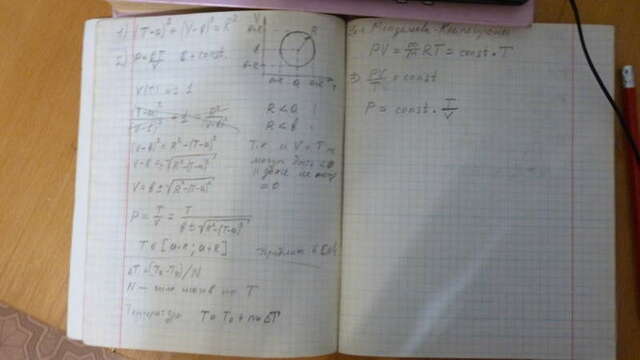 1) (T-a)² + (V-b)² = R²
2) P = kT/V k = const.
V
R
a-R a a+R T
V(T) = 1
(V-b)² = R²-(T-a)²
V-b = ±√(R²-(T-a)²)
V = b ± √(R²-(T-a)²)
R < a !
R < b !
Т.к. и V и T не
могут быть <0
и даже не могут
= 0.
P = T/V = T/(b ± √(R²-(T-a)²))
T ∈ [a-R; a+R]
ΔT = (Tк - T0)/N
N - число шагов по T
Температура T = T0 + n•ΔT
Менделеева-Клапейрона
PV = m/μ RT = const • T
3) PV/T = const
P = const • T/V